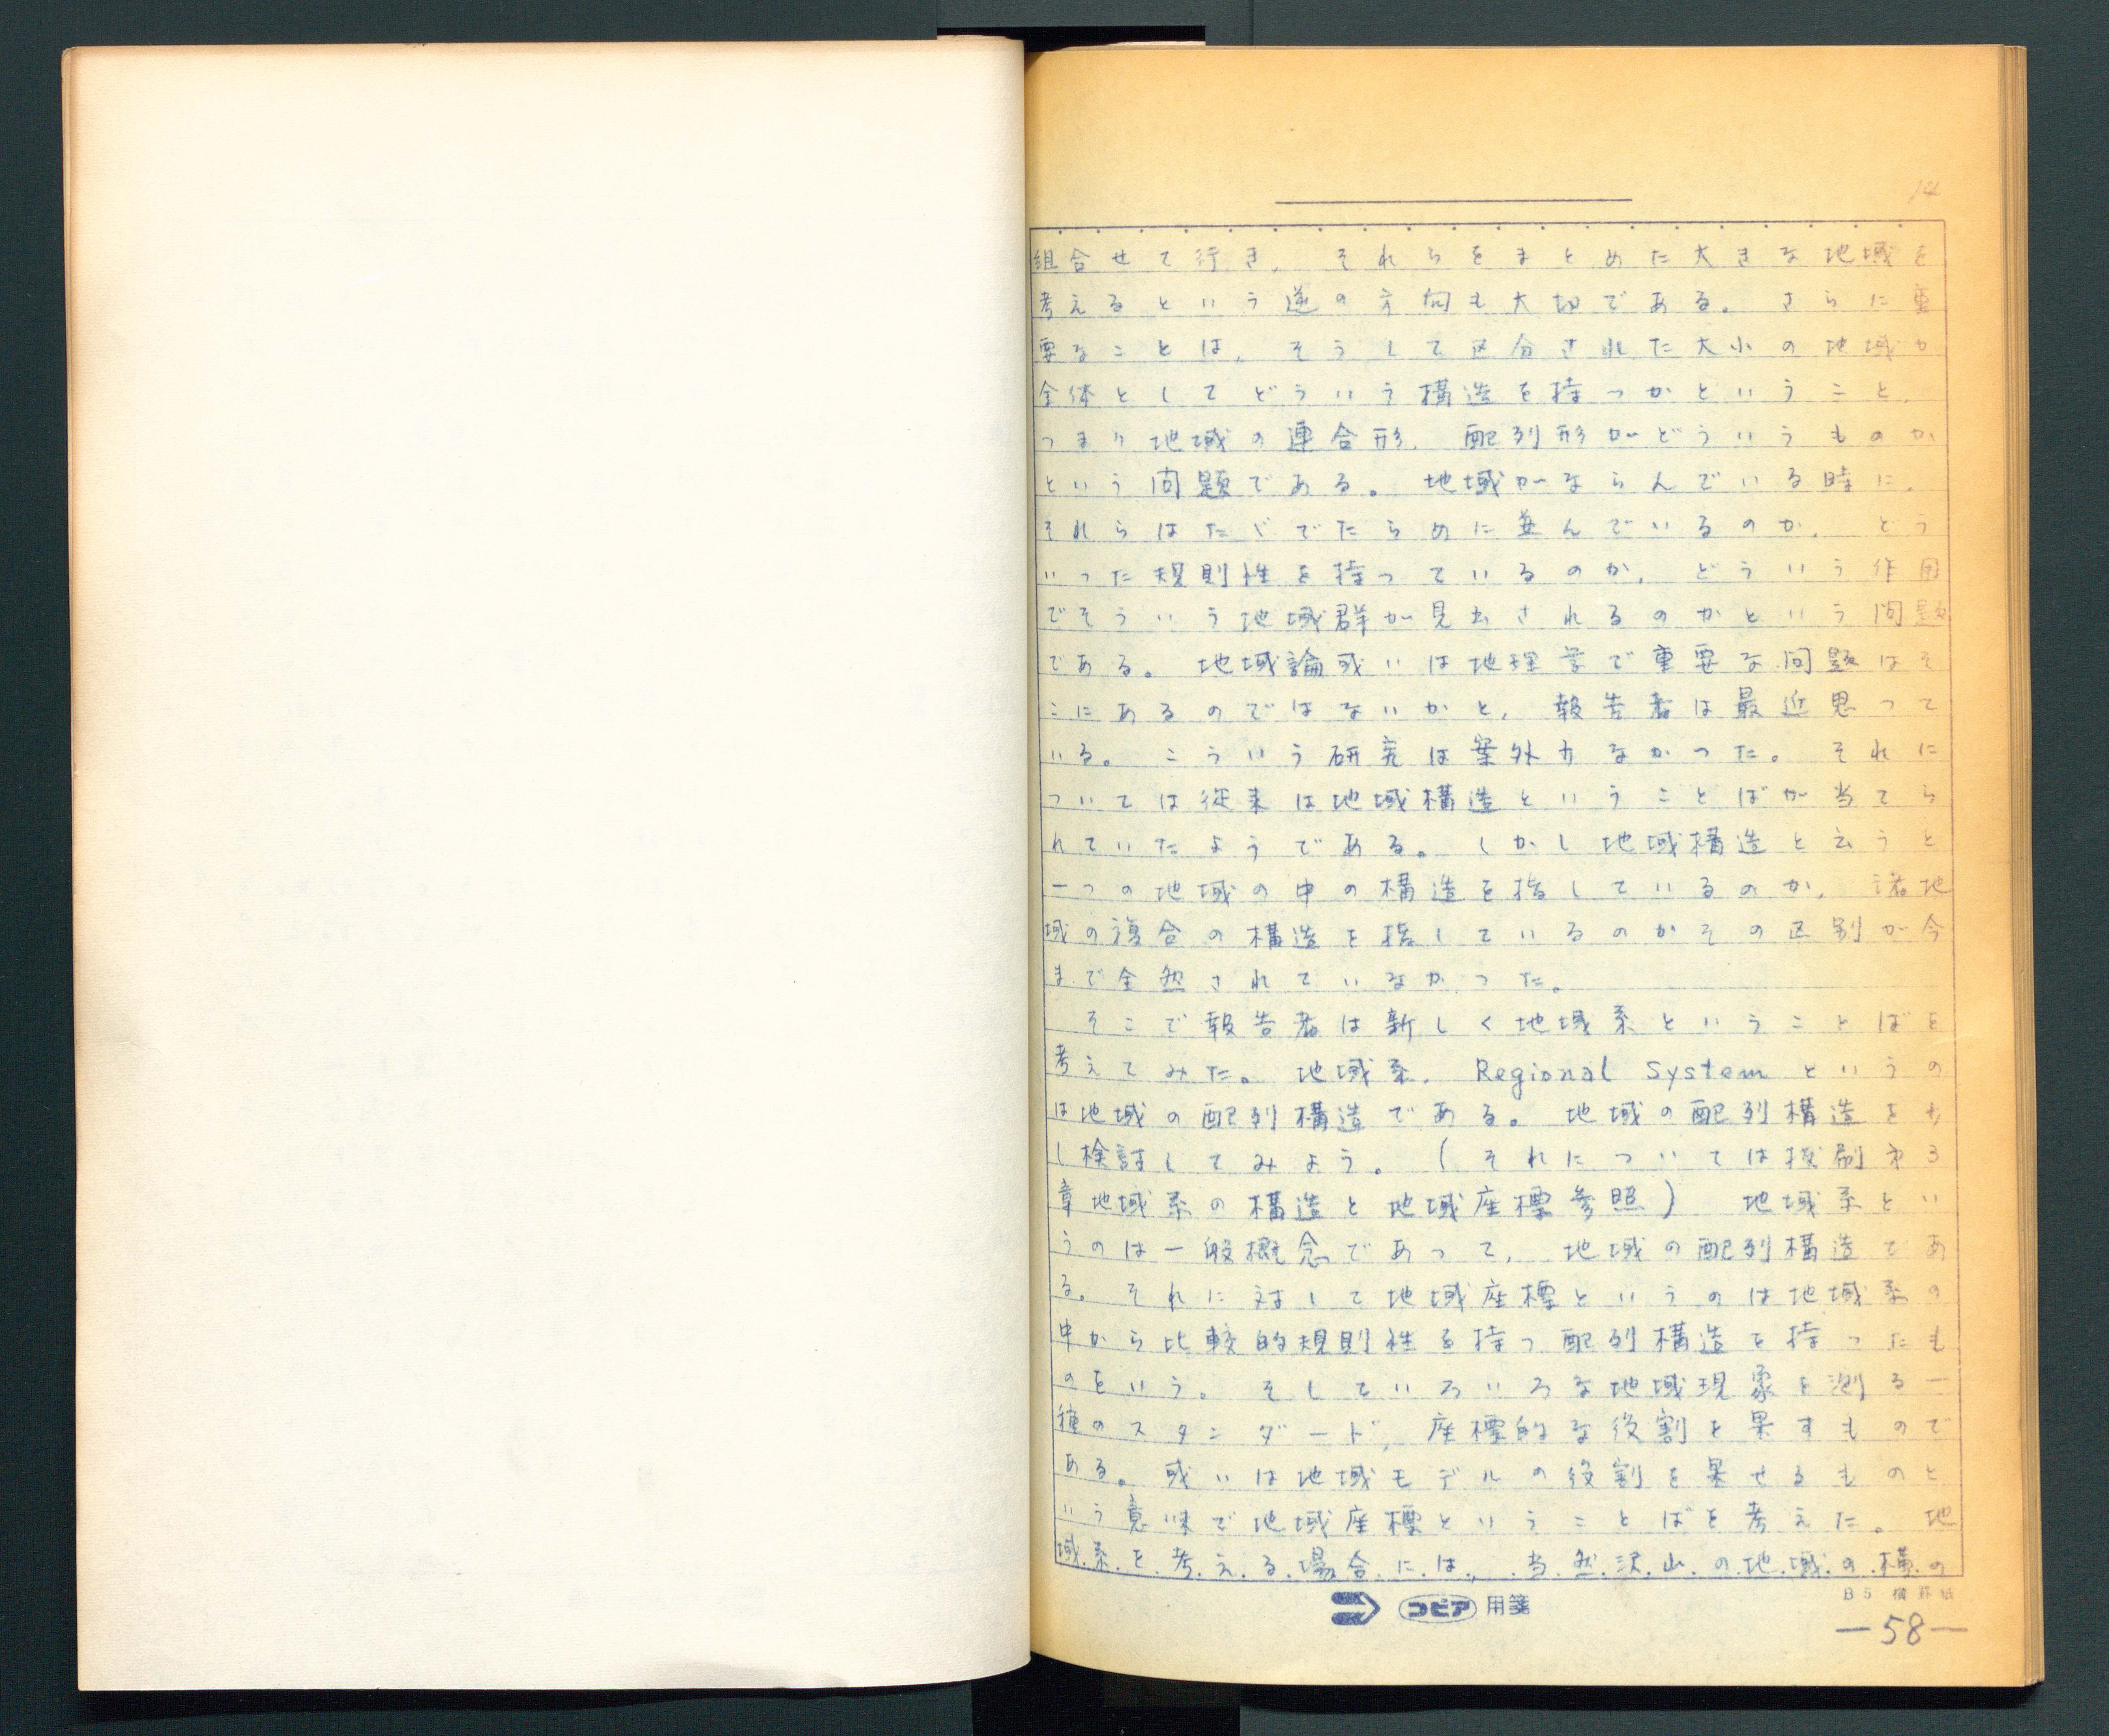 14
組合せて行き, それらをまとめた大きな地域を
考えるという逆の方向も大切である。さらに重
要なことは, そうして区分された大小の地域が
全体としてどういう構造を持つかということ,
つまり地域の連合形, 配列形がどういうものか
という問題である。地域がならんでいる時に,
それらはたゞでたらめに並んでいるのか, どう
いった規則性を持っているのか, どういう作用
でそういう地域群が見出されるのかという問題
である。地域論或いは地理学で重要な問題はそ
こにあるのではないかと, 報告者は最近思って
いる。こういう研究は案外少なかった。それに
ついては従来は地域構造ということばが当てら
れていたようである。しかし地域構造と云うと
一つの地域の中の構造を指しているのか, 諸地
域の複合の構造を指しているのかその区別が今
まで全然されていなかった。
そこで報告者は新しく地域系ということばを
考えてみた。地域系, Regional Systemというの
は地域の配列構造である。地域の配列構造を少
し検討してみよう。(それについては抜刷才3
章地域系の構造と地域座標参照) 地域系とい
うのは一般概念であって, 地域の配列構造であ
る。それに対して地域座標というのは地域系の
中から比較的規則性を持つ配列構造を持ったも
のをいう。そしていろいろな地域現象を測る一
種のスタンダード, 座標的な役割を果すもので
ある。或いは地域モデルの役割を果せるものと
いう意味で地域座標ということばを考えた。地
域系を考える場合には, 当然沢山の地域の横の
コピア 用箋
B5 横罫紙
—58—